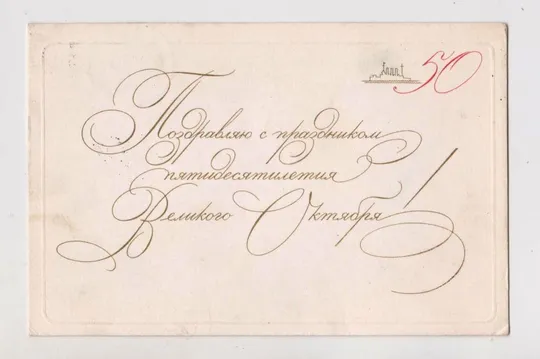 50
Поздравляю с праздником
пятидесятилетия
Великого Октября!